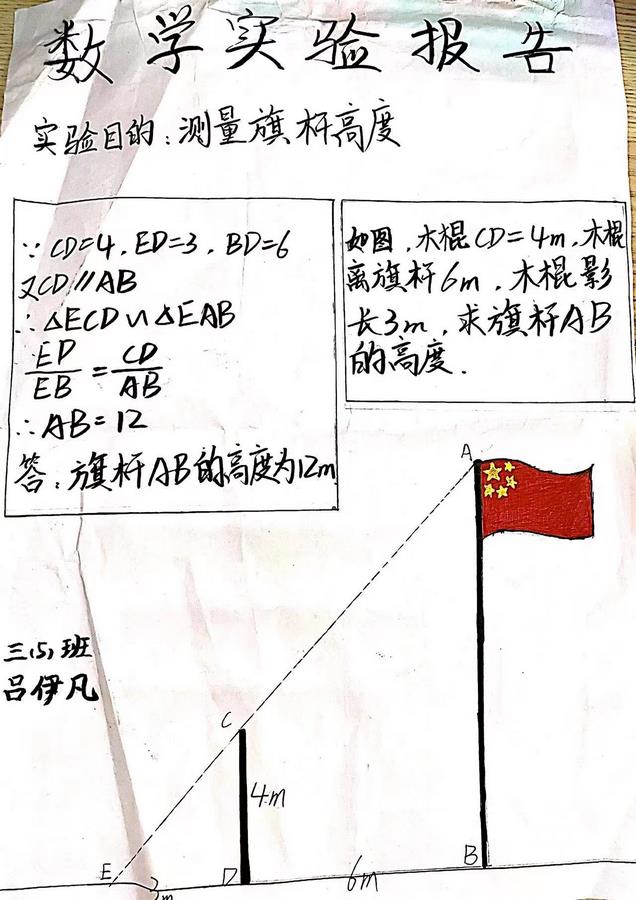 数学实验报告
实验目的:测量旗杆高度
∵ CD=4, ED=3, BD=6
又CD∥AB
∴ △ECD∽△EAB
ED/EB = CD/AB
∴ AB=12
答:旗杆AB的高度为12m
如图,木棍CD=4m,木棍
离旗杆6m,木棍影
长3m,求旗杆AB
的高度.
A
三(5)班
吕伊凡
C
4m
B
E
D
6m
3m